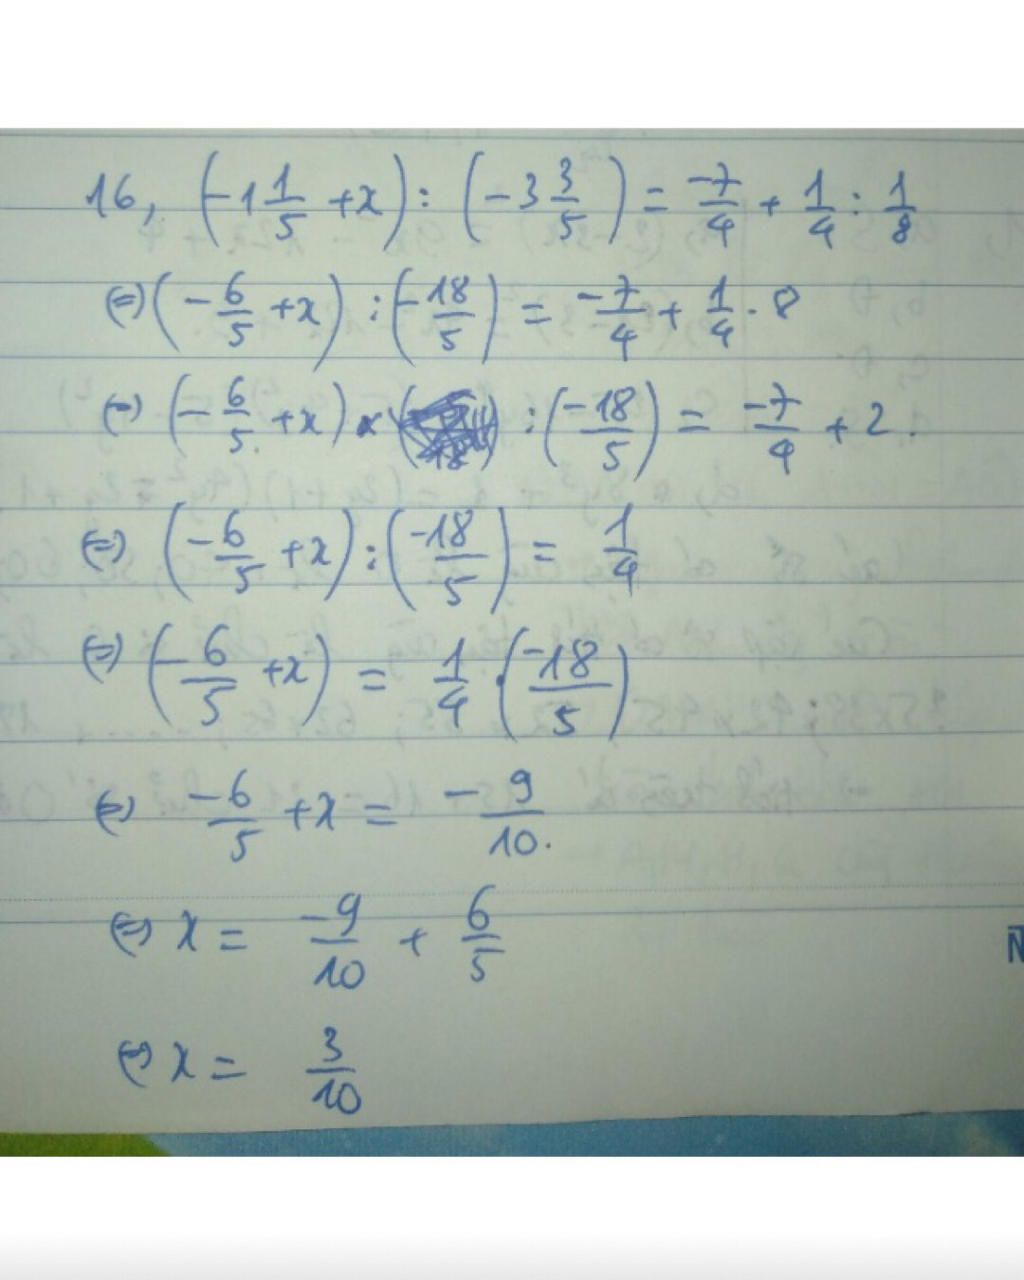 16, (-1 1/5 + x) : (-3 3/5) = -7/4 + 1/4 : 1/8
(=) (-6/5 + x) : (-18/5) = -7/4 + 1/4 · 8
(=) (-6/5 + x) : (-18/5) = -7/4 + 2.
(=) (-6/5 + x) : (-18/5) = 1/4
(=) (-6/5 + x) = 1/4 · (-18/5)
(=) -6/5 + x = -9/10.
(=) x = -9/10 + 6/5
(=) x = 3/10